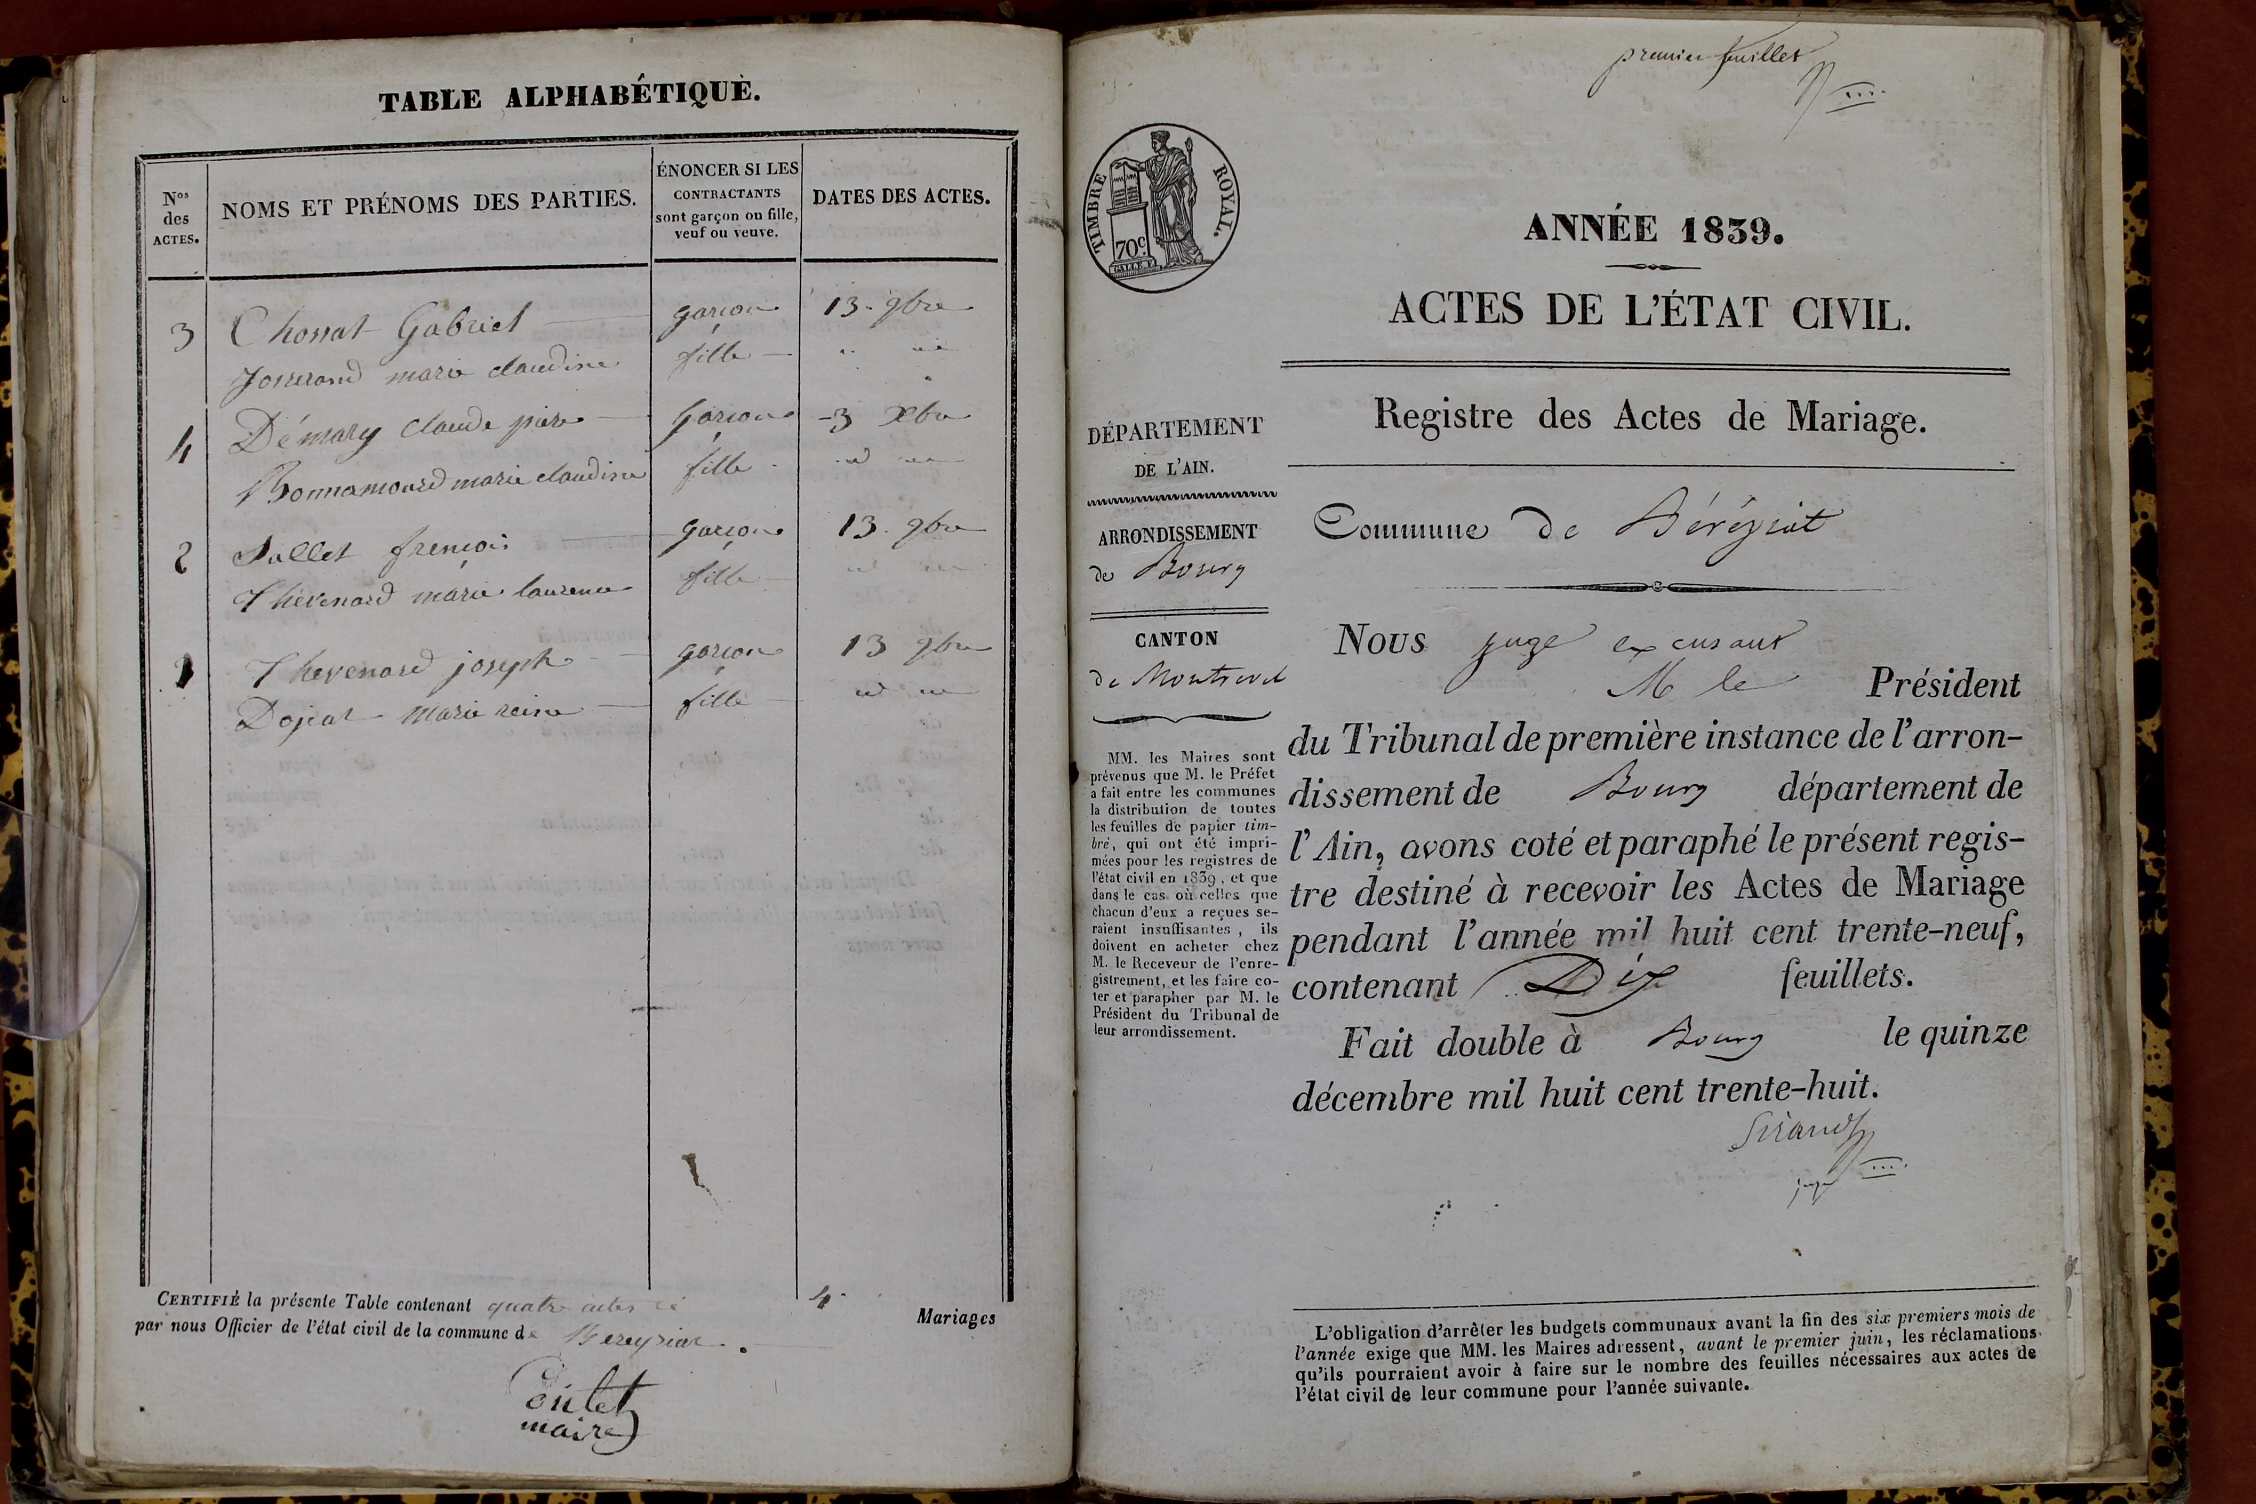 TABLE ALPHABÉTIQUE.
Nos des ACTES.
NOMS ET PRÉNOMS DES PARTIES.
ÉNONCER SI LES
CONTRACTANTS
sont garçon ou fille,
veuf ou veuve.
DATES DES ACTES.
3 Chossat Gabriel garçon 13 9bre
Josserand marie claudine fille
4 Démary claude pierre garçon 3 Xbre
Bonnamourd marie claudine fille
2 Sallet françois garçon 13 9bre
Thévenard marie laurence fille
1 Thevenard joseph garçon 13 9bre
marie reine fille
CERTIFIÉ la présente Table contenant quatre actes 4 Mariages
par nous Officier de l'état civil de la commune de Bereyziat.
maire
premier feuillet
TIMBRE ROYAL.
70c
ANNÉE 1839.
ACTES DE L'ÉTAT CIVIL.
Registre des Actes de Mariage.
DÉPARTEMENT
DE L'AIN.
ARRONDISSEMENT
de Bourg
CANTON
de Montrevel
MM. les Maires sont
prévenus que M. le Préfet
a fait entre les communes
la distribution de toutes
les feuilles de papier tim-
bré, qui ont été impri-
mées pour les registres de
l'état civil en 1839, et que
dans le cas où celles que
chacun d'eux a reçues se-
raient insuffisantes, ils
doivent en acheter chez
M. le Receveur de l'enre-
gistrement, et les faire co-
ter et parapher par M. le
Président du Tribunal de
leur arrondissement.
Commune de Béréziat
Nous juge excusant
M le Président
du Tribunal de première instance de l'arron-
dissement de Bourg département de
l'Ain, avons coté et paraphé le présent regis-
tre destiné à recevoir les Actes de Mariage
pendant l'année mil huit cent trente-neuf,
contenant Dix feuillets.
Fait double à Bourg le quinze
décembre mil huit cent trente-huit.
Sirand
juge
L'obligation d'arrêter les budgets communaux avant la fin des six premiers mois de
l'année exige que MM. les Maires adressent, avant le premier juin, les réclamations
qu'ils pourraient avoir à faire sur le nombre des feuilles nécessaires aux actes de
l'état civil de leur commune pour l'année suivante.